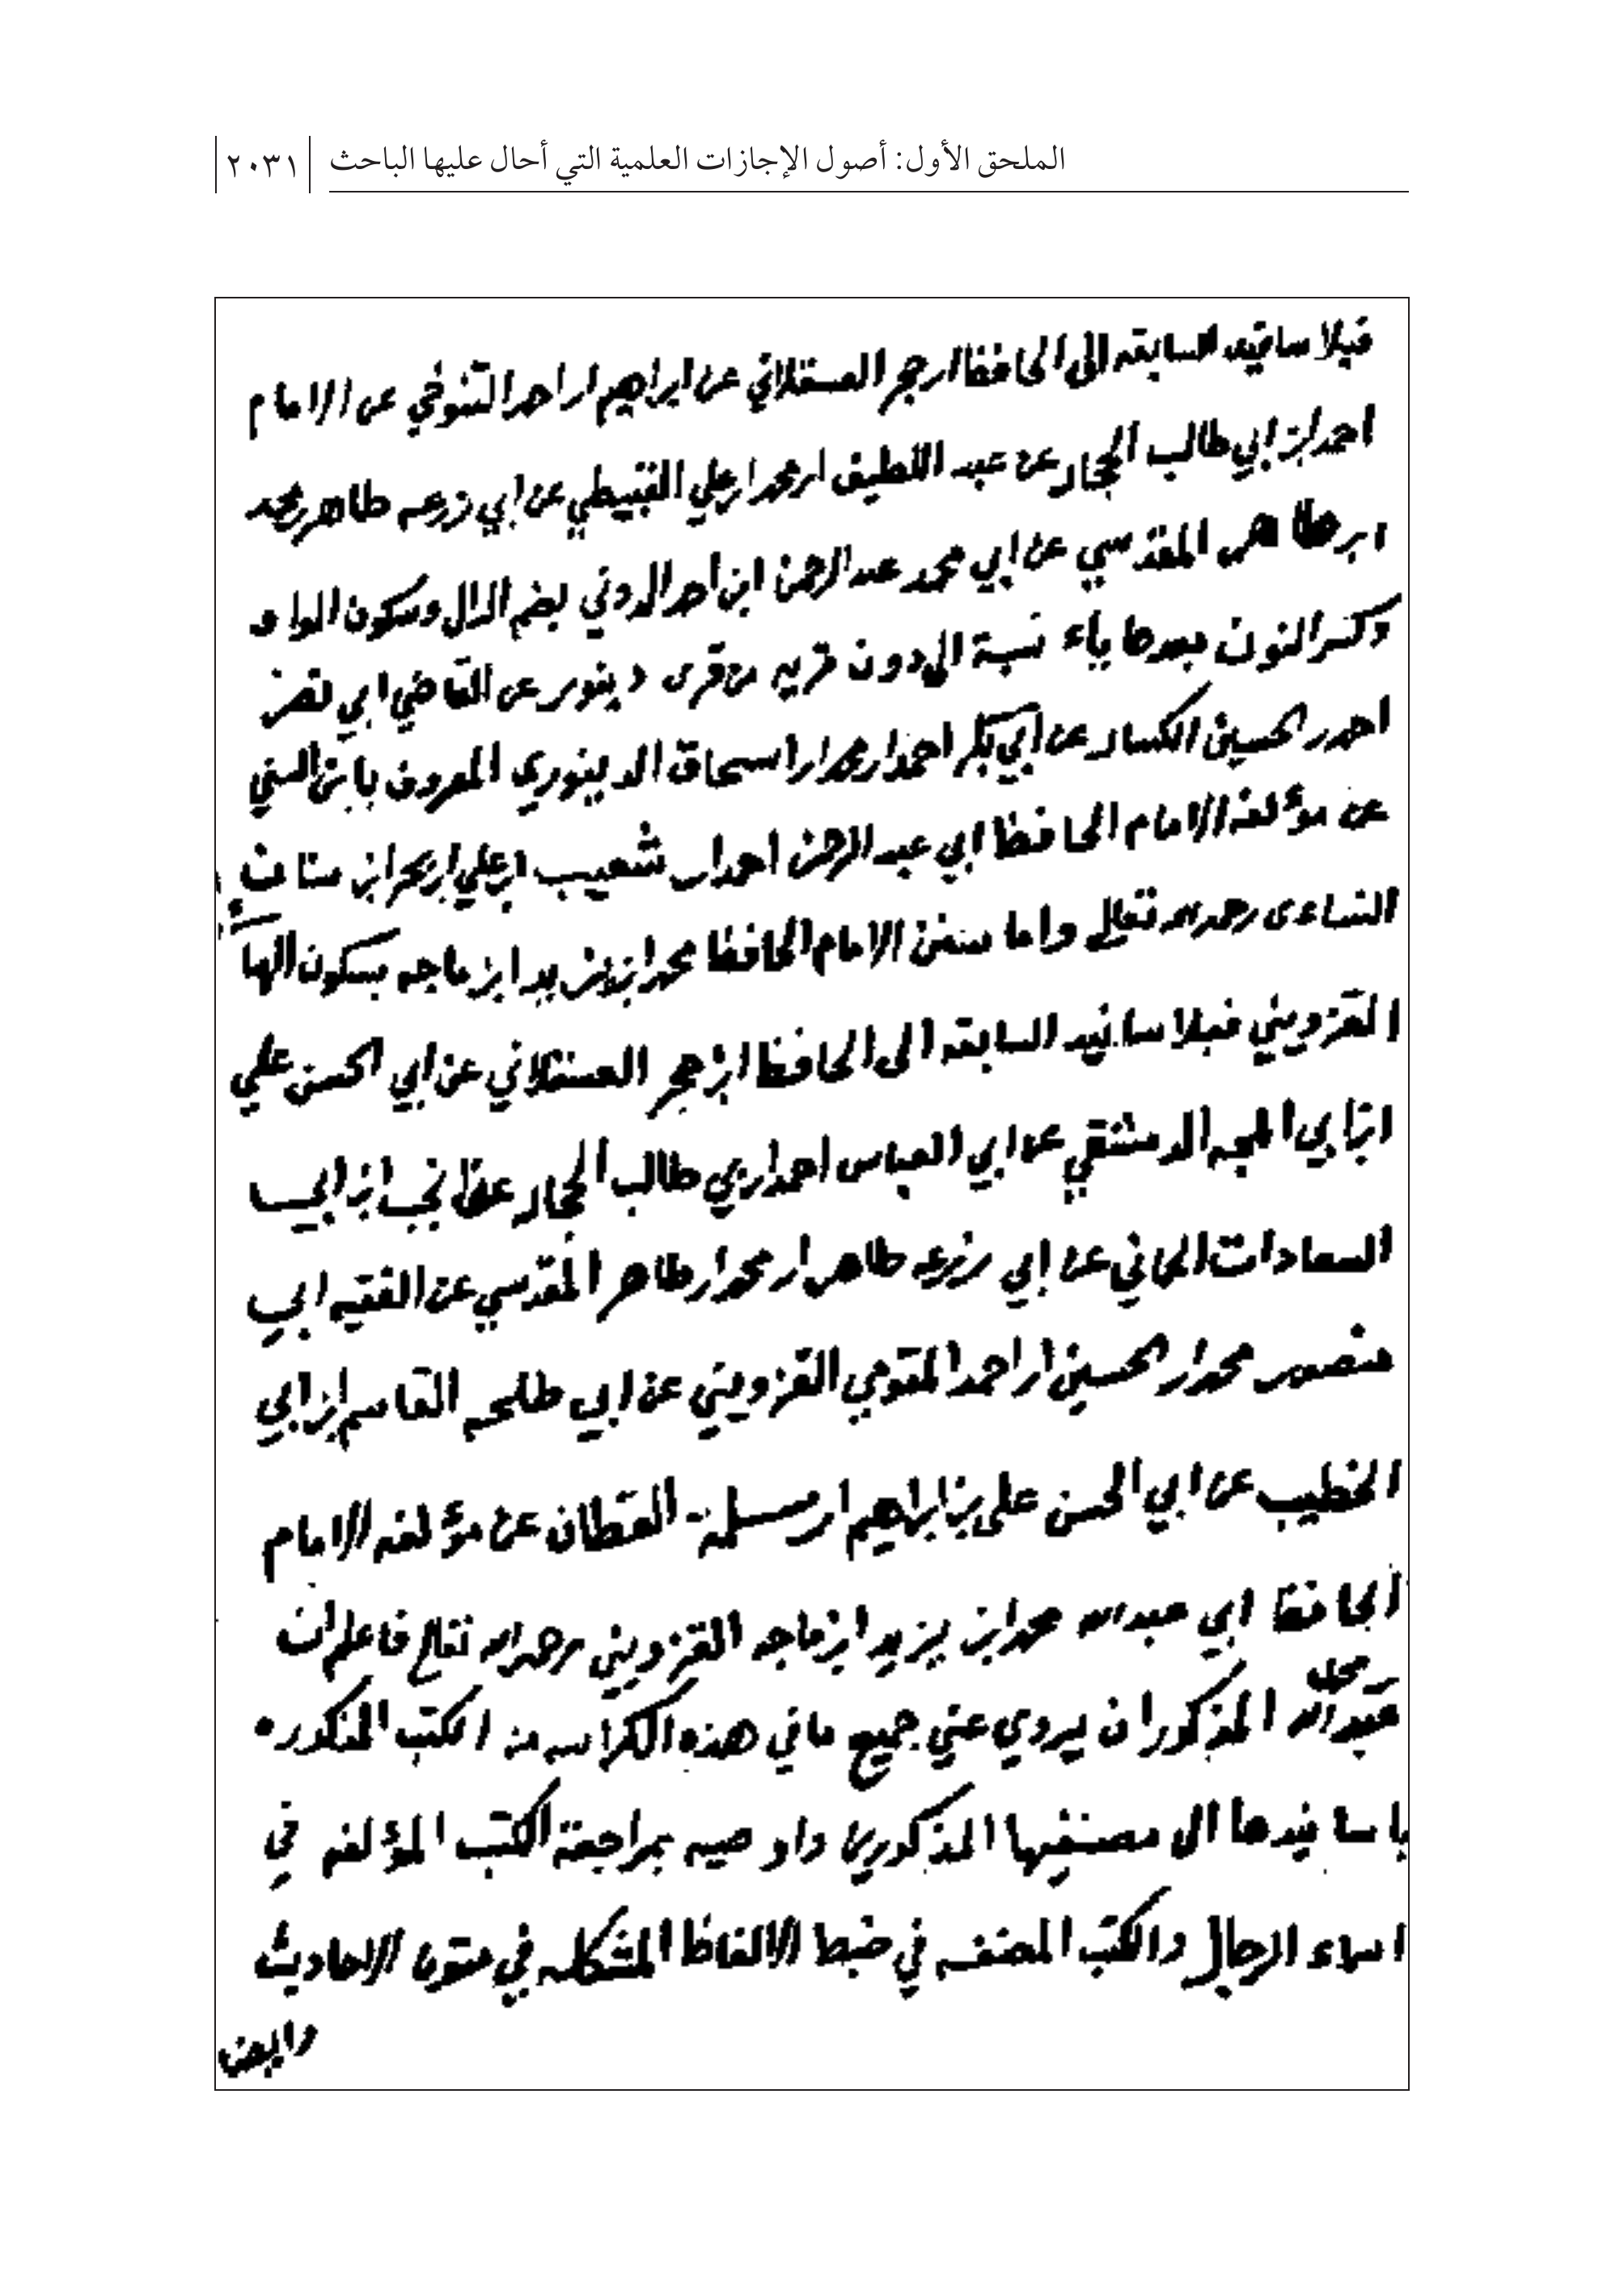 الملحق الأول: أصول الإجازات العلمية التي أحال عليها الباحث ٢٠٣١
فبلاسانيد السابقه الى الحافظ ابن حجر العسقلاني عن ابراهيم ابن احمد التنوخي عن الامام
احمد ابن ابي طالب الحجار عن عبد اللطيف ابن محمد ابن علي القبيطي عن ابي زرعه طاهر بن محمد
ابن طاهر المقدسي عن ابي محمد عبد الرحمن ابن احمد الدوني بضم الدال وسكون الواو
وكسر النون بعدها ياء نسبة الى دون قريه من قرى دينور عن القاضي ابي نصر
احمد بن الحسين الكسار عن ابي بكر احمد ابن محمد ابن اسحاق الدينوري المعروف بابن السني
عن مؤلفه الامام الحافظ ابي عبد الرحمن احمد ابن شعيب ابن علي ابن بحر ابن سنان
النساءى رحمه الله تعالى واما سنن الامام الحافظ محمد ابن يزيد ابن ماجه بسكون الها
القزويني فبلاسانيد السابقه الى الحافظ ابن حجر العسقلاني عن ابي الحسن علي
ابن ابي المجد الدمشقي عن ابي العباس احمد ابن ابي طالب الحجار عن انجب ابن ابي
السعادات الحماني عن ابي زرعه طاهر ابن محمد ابن طاهر المقدسي عن الفقيه ابي
منصور محمد ابن الحسين ابن احمد المقومي القزويني عن ابي طلحه القاسم ابن ابي
الخطيب عن ابي الحسن على بن ابراهيم ابن سلمة القطان عن مؤلفه الامام
الحافظ ابي عبد الله محمد ابن يزيد ابن ماجه القزويني رحمه الله تعالى
عبد الله المذكور ان يروي عني جميع ما في هذه الكراسه من الكتب المذكوره
باسانيدها الى مصنفيها المذكورين واوصيه بمراجعة الكتب المؤلفه في
اسماء الرجال والكتب المصنفه في ضبط الالفاظ المشكله في متون الاحاديث